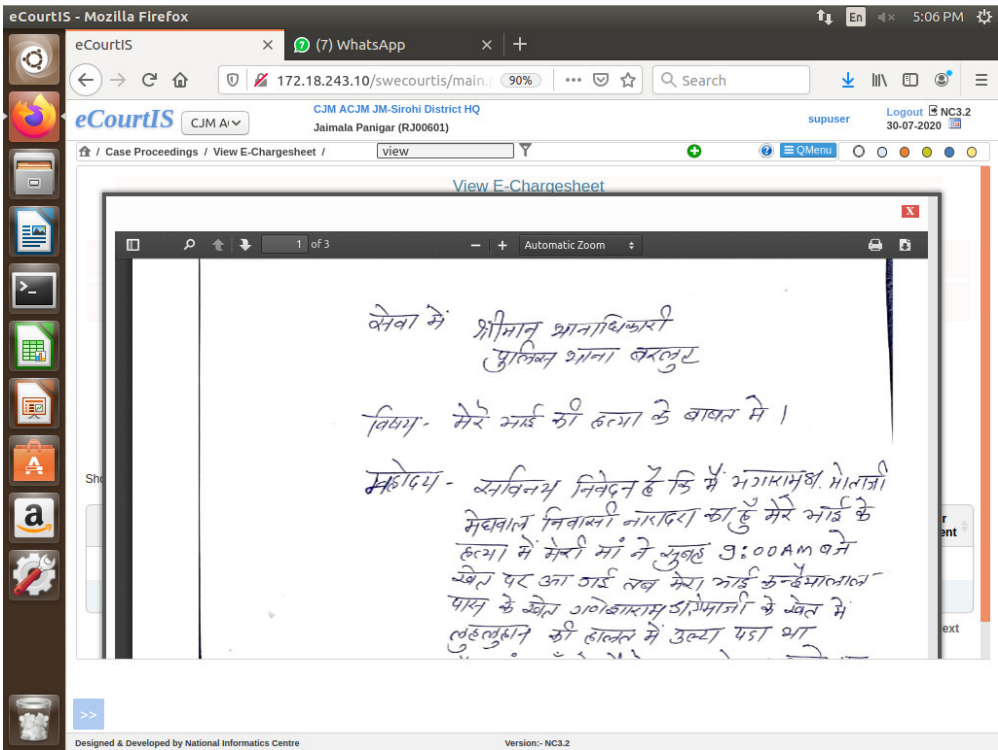 eCourtIS - Mozilla Firefox
En
5:06 PM
eCourtIS
(7) WhatsApp
172.18.243.10/swecourtis/main.
90%
Search
eCourtIS
CJM A
CJM ACJM JM-Sirohi District HQ
Jaimala Panigar (RJ00601)
supuser
Logout NC3.2
30-07-2020
/ Case Proceedings / View E-Chargesheet /
view
QMenu
View E-Chargesheet
X
1 of 3
Automatic Zoom
सेवा में श्रीमान थानाधिकारी
पुलिस थाना बरलुट
विषय- मेरे भाई की हत्या के बाबत मे ।
महोदय - सविनय निवेदन है कि मैं भगाराम S/o मोताजी
मेघवाल निवासी नारादरा का हूँ मेरे भाई के
हत्या में मेरी मां ने सुबह 9:00AM बजे
खेत पर आ गई तब मेरा भाई कन्हैयालाल
पास के खेत गणेशाराम के खेत में
लुहलुहान की हालत में उल्टा पडा था
Sho
r
ent
ext
>>
Designed & Developed by National Informatics Centre
Version:- NC3.2